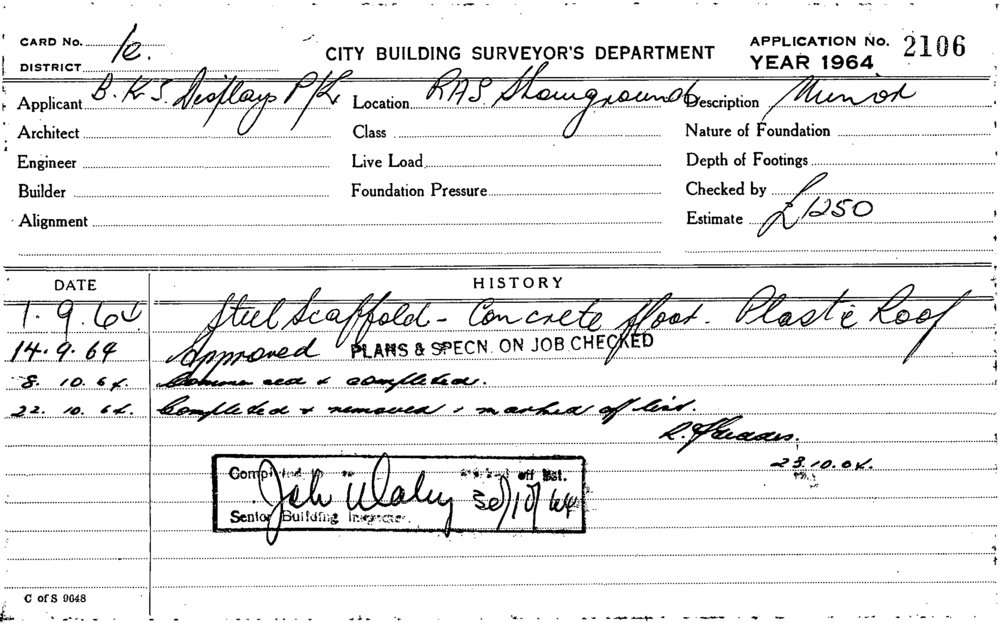 CARD No. 1c.
DISTRICT
CITY BUILDING SURVEYOR'S DEPARTMENT
APPLICATION No. 2106
YEAR 1964
Applicant B.K.S. Displays P/L Location RAS Showground Description Minor
Architect Class Nature of Foundation
Engineer Live Load Depth of Footings
Builder Foundation Pressure Checked by
Alignment Estimate £1250
DATE HISTORY
1.9.64 Steel Scaffold - Concrete floor. Plastic Roof
14.9.64 Approved PLANS & SPECN. ON JOB CHECKED
8.10.64. Commenced & completed.
22.10.64. Completed & removed & marked off list.
23.10.64.
Completed off list.
30/10/64
Senior Building Inspector
C of S 9648